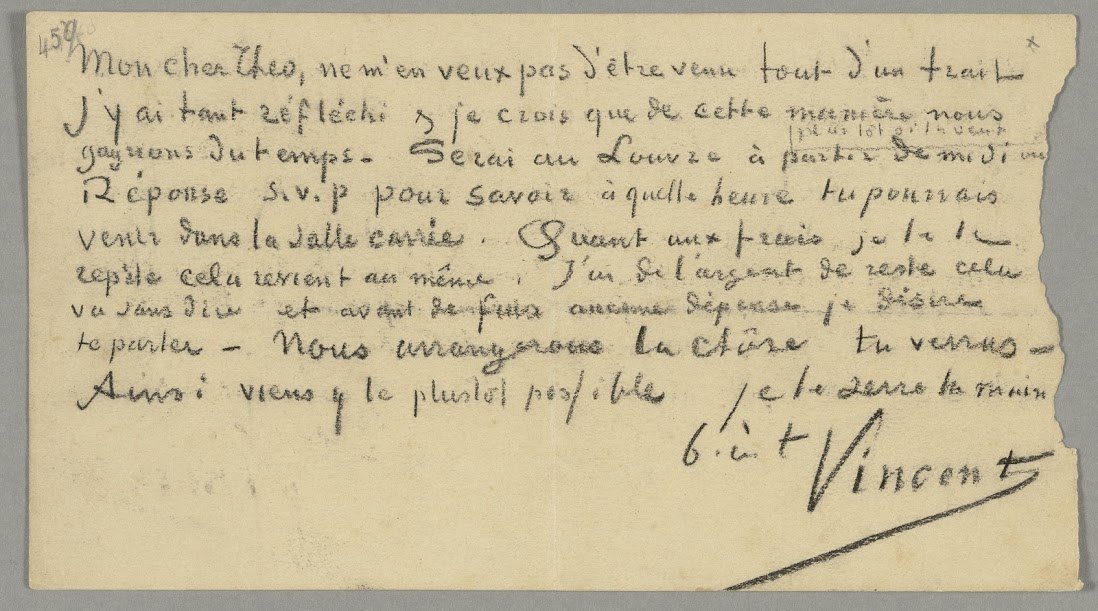 Mon cher Theo, ne m'en veux pas d'être venu tout d'un trait
J'y ai tant réfléchi & je crois que de cette manière nous
gagnons du temps. Serai au Louvre à partir de midi ou
plus tôt si tu veux
Réponse s.v.p pour savoir à quelle heure tu pourrais
venir dans la Salle carrée. Quant aux frais je te le
repète cela revient au même. J'ai de l'argent de reste cela
va sans dire et avant de faire aucune dépense je désire
te parler - Nous arrangerons la chôse tu verras -
Ainsi viens y le plustot possible je te serre la main
b. à t Vincent